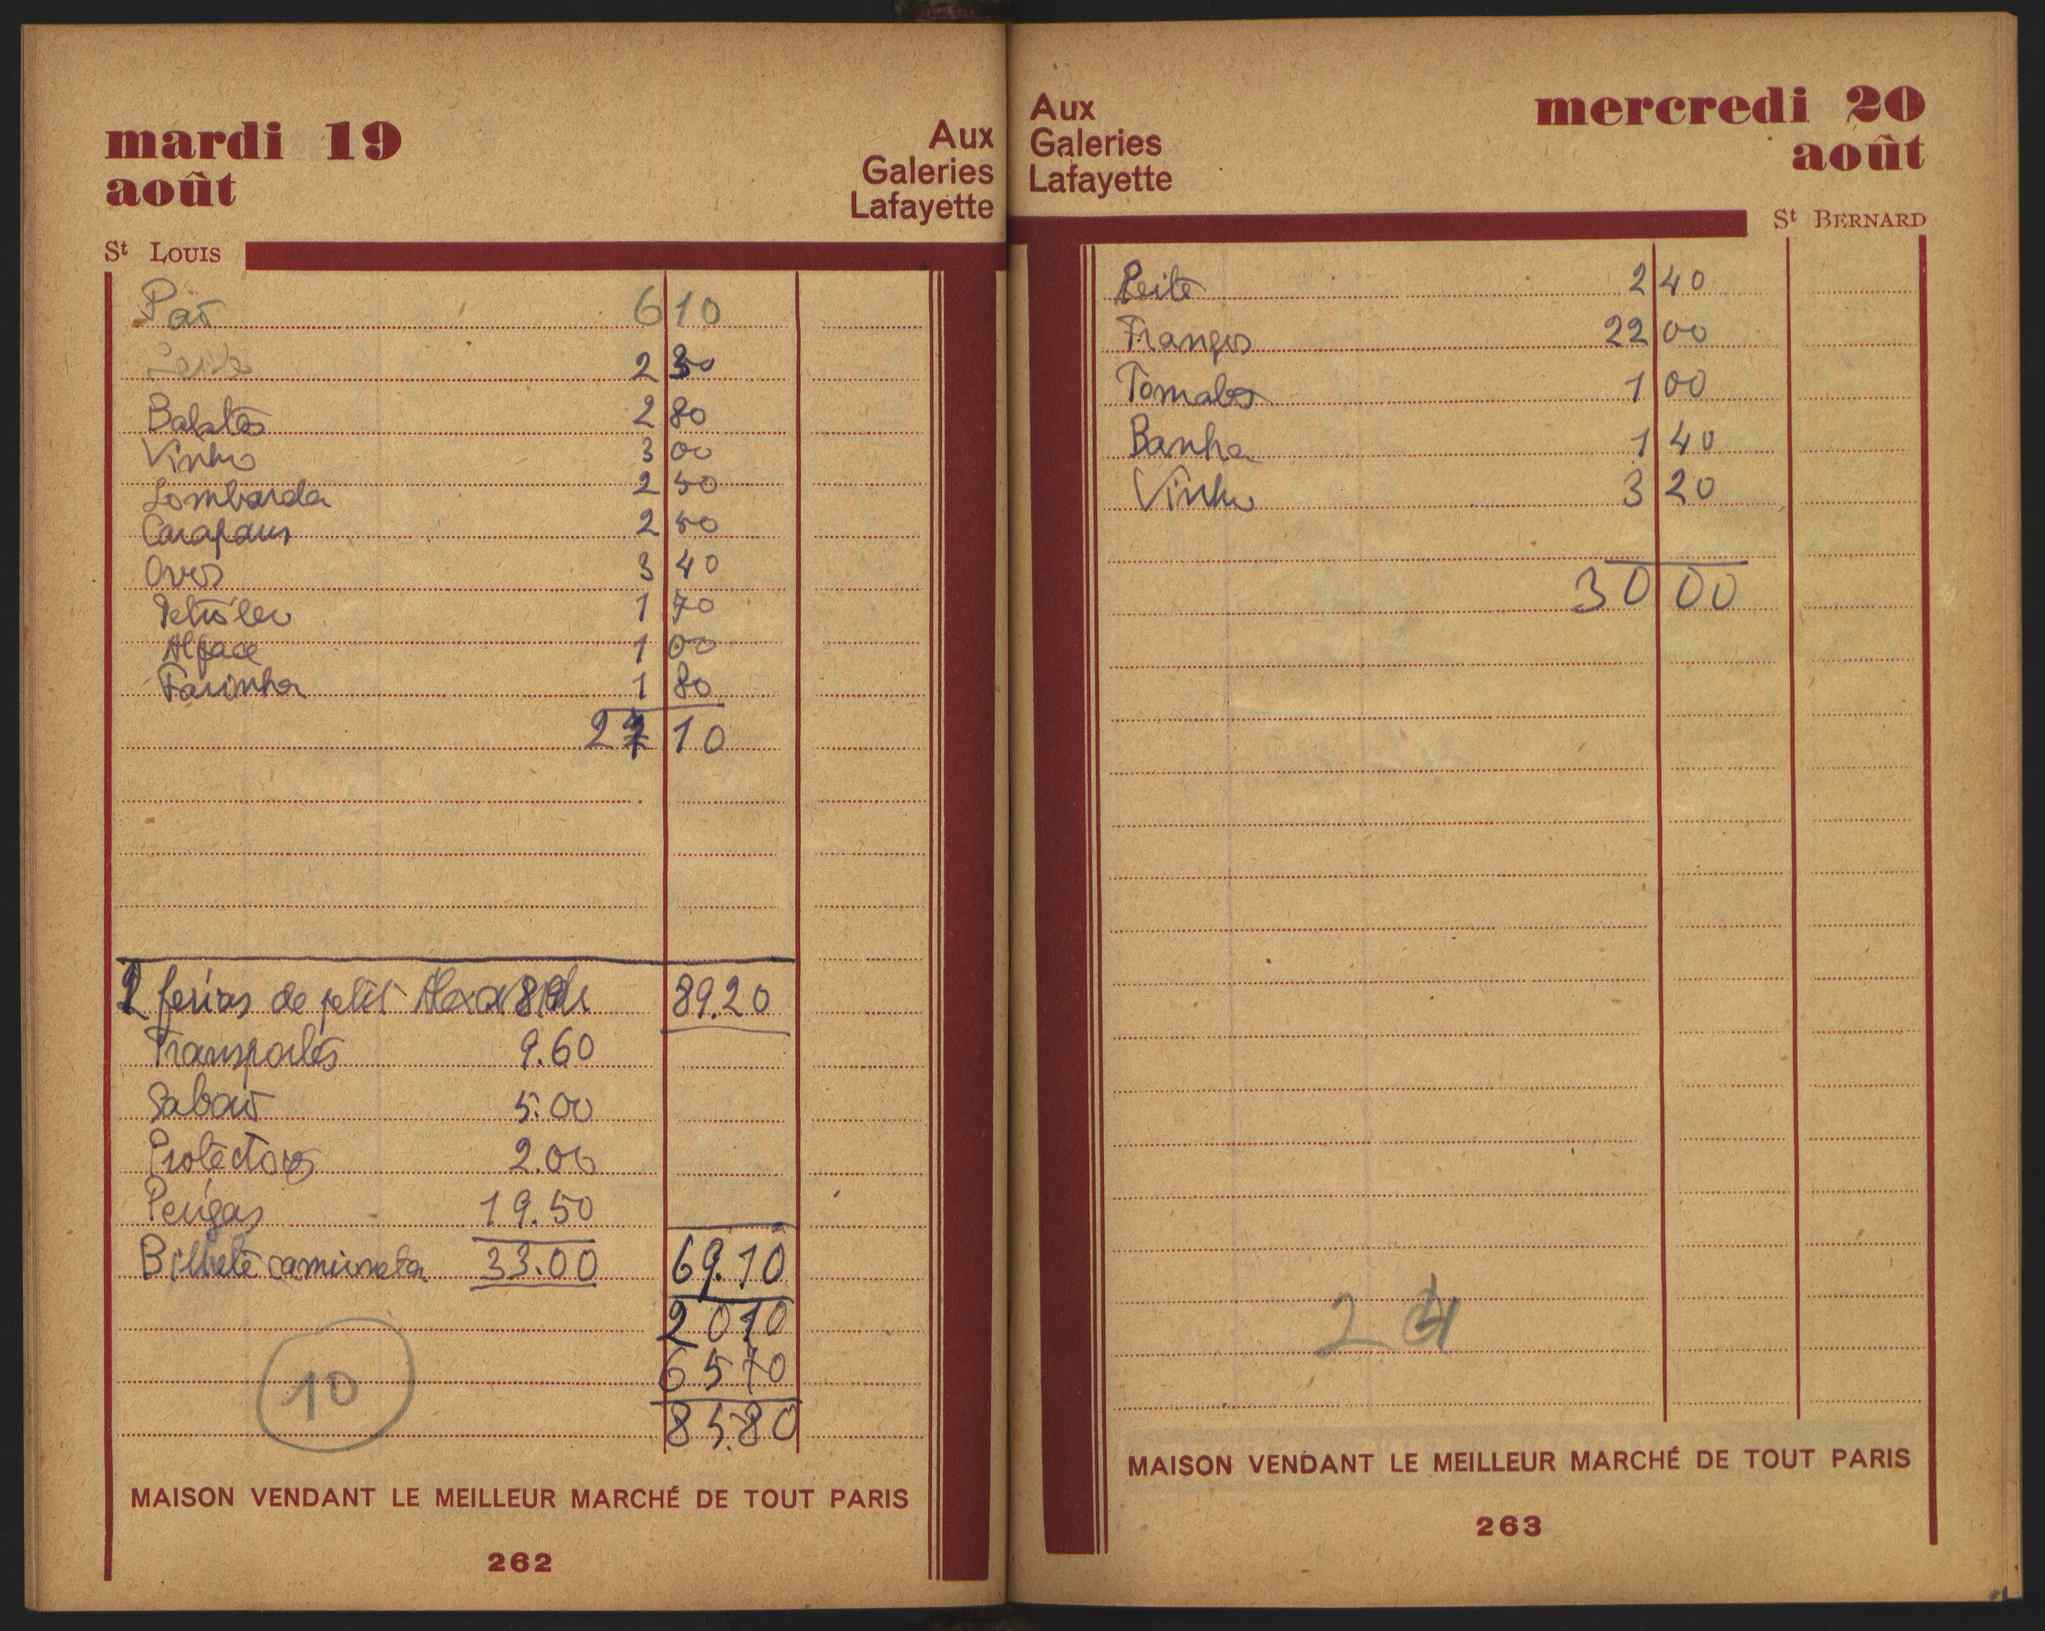 mardi 19
août
Aux
Galeries
Lafayette
St Louis
Pão 6 10
Leite 2 30
Batatas 2 80
Vinho 3 00
Lombarda 2 50
Carapaus 2 50
Ovos 3 40
Petróleo 1 70
Alface 1 00
Farinha 1 80
27 10
2 ferias de petit 89.20
Transportes 9.60
Sabão 5.00
Protectores 2.00
Perigas 19.50
Bilhete camioneta 33.00 69.10
20 10
65 70
85.80
10
MAISON VENDANT LE MEILLEUR MARCHÉ DE TOUT PARIS
262
Aux
Galeries
Lafayette
mercredi 20
août
St Bernard
Leite 2 40
Frangos 22 00
Tomates 1 00
Banha 1 40
Vinho 3 20
30 00
24
MAISON VENDANT LE MEILLEUR MARCHÉ DE TOUT PARIS
263